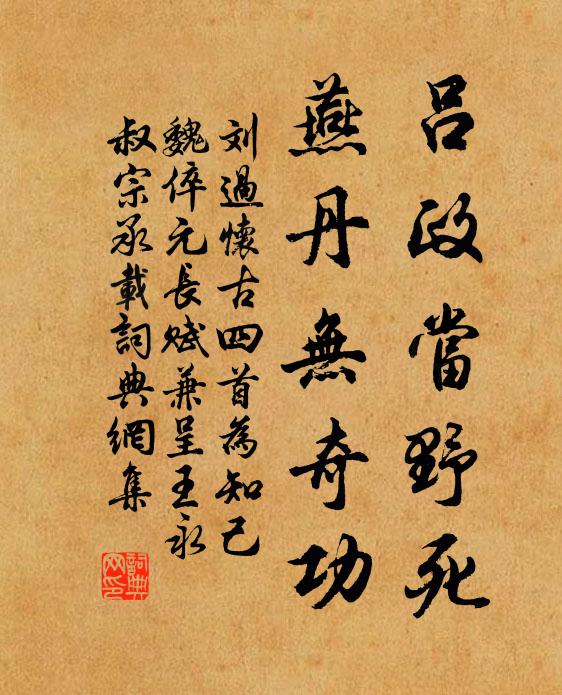 吕政當野死
燕丹無奇功
刘過懷古四首為知己
魏倅元長賦兼呈王永
叔宗丞載詞典網集
詞典
网印